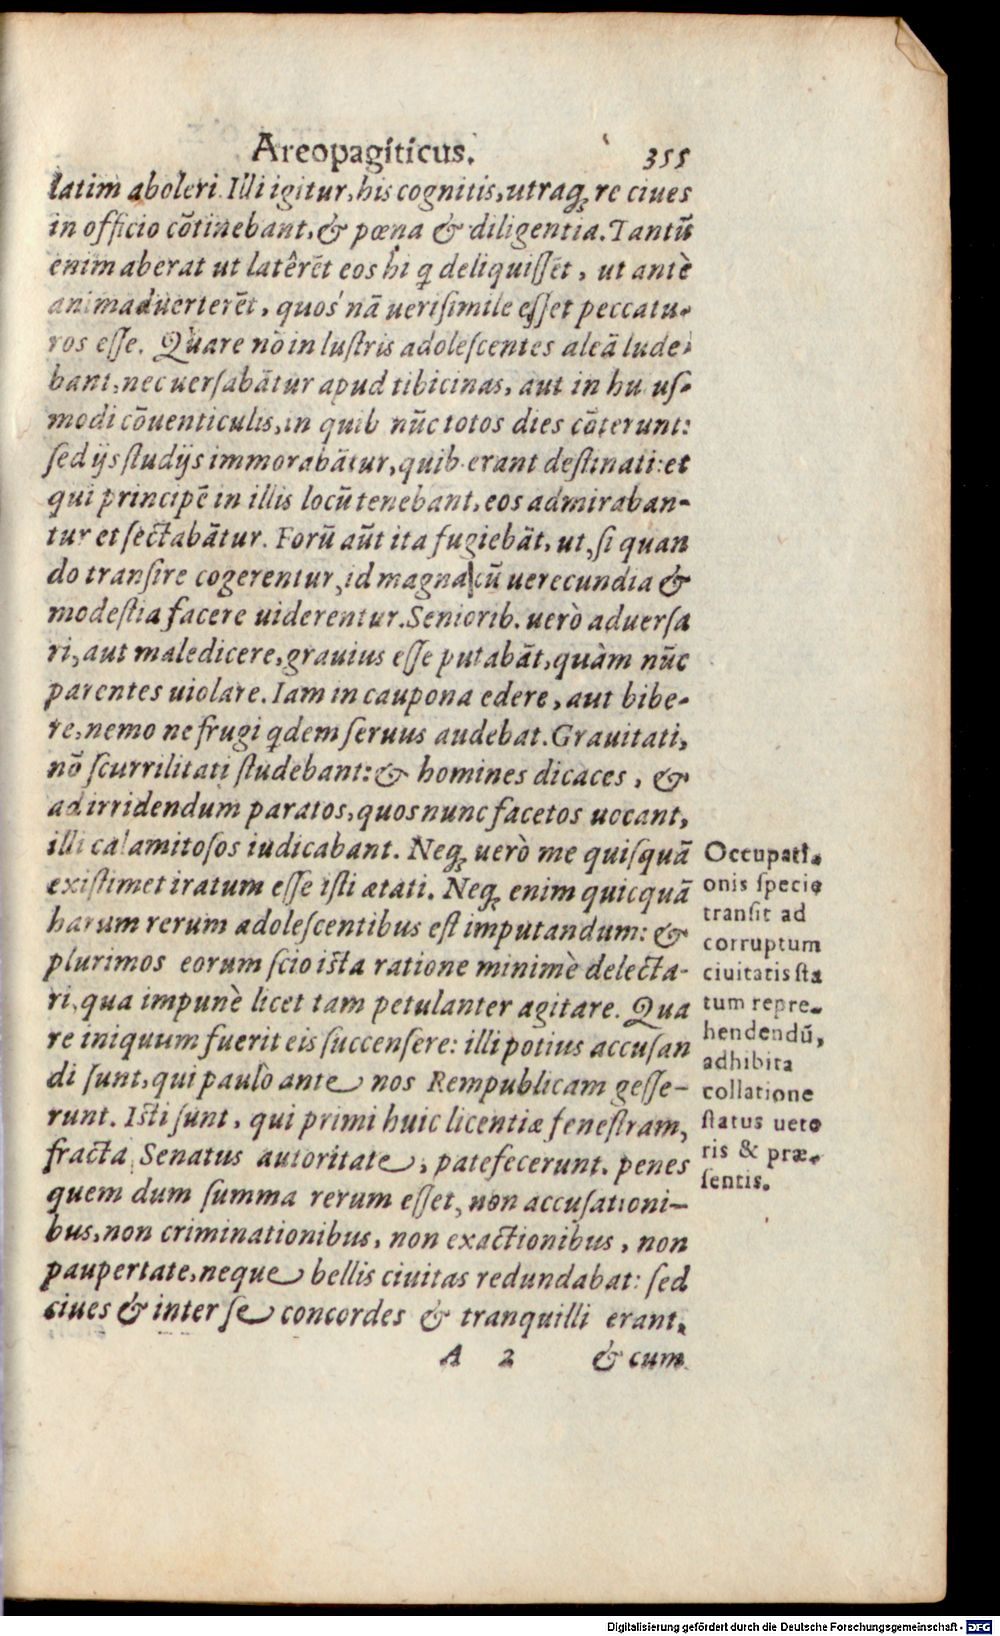 Areopagiticus. 355
latim aboleri. Illi igitur, his cognitis, utraq; re ciues
in officio cōtinebant, & pœna & diligentia. Tantũ
enim aberat ut latêrēt eos hi q̃ deliquiſſēt, ut antè
animaduerterēt, quos nā ueriſimile eſſet peccatu-
ros eſſe. Quare nō in luſtris adoleſcentes aleā lude
bant, nec uerſabātur apud tibicinas, aut in hu uſ-
modi cōuenticulis, in quib nūc totos dies cōterunt:
ſed ijs ſtudijs immorabātur, quib. erant deſtinati: et
qui principē in illis locū tenebant, eos admiraban-
tur et ſectabātur. Forū aūt ita fugiebāt, ut, ſi quan
do tranſire cogerentur, id magna cū uerecundia &
modeſtia facere uiderentur. Seniorib. uerò aduerſa
ri, aut maledicere, grauius eſſe putabāt, quàm nūc
parentes uiolare. Iam in caupona edere, aut bibe-
re, nemo ne frugi q̃dem ſeruus audebat. Grauitati,
nō ſcurrilitati ſtudebant: & homines dicaces, &
ad irridendum paratos, quos nunc facetos uocant,
illi calamitoſos iudicabant. Neq; uerò me quiſquā
exiſtimet iratum eſſe iſti ætati. Neq; enim quicquā
harum rerum adoleſcentibus eſt imputandum: &
plurimos eorum ſcio iſta ratione minimè delecta-
ri, qua impunè licet tam petulanter agitare. Qua
re iniquum fuerit eis ſuccenſere: illi potius accuſan
di ſunt, qui paulo ante nos Rempublicam geſſe-
runt. Iſti ſunt, qui primi huic licentiæ feneſtram,
fracta Senatus autoritate, patefecerunt. penes
quem dum ſumma rerum eſſet, non accuſationi-
bus, non criminationibus, non exactionibus, non
paupertate, neque bellis ciuitas redundabat: ſed
ciues & inter ſe concordes & tranquilli erant,
A 2 & cum
Occupati-
onis ſpecie
tranſit ad
corruptum
ciuitatis ſta
tum repre-
hendendũ,
adhibita
collatione
ſtatus uete
ris & præ-
ſentis.
Digitalisierung gefördert durch die Deutsche Forschungsgemeinschaft - DFG